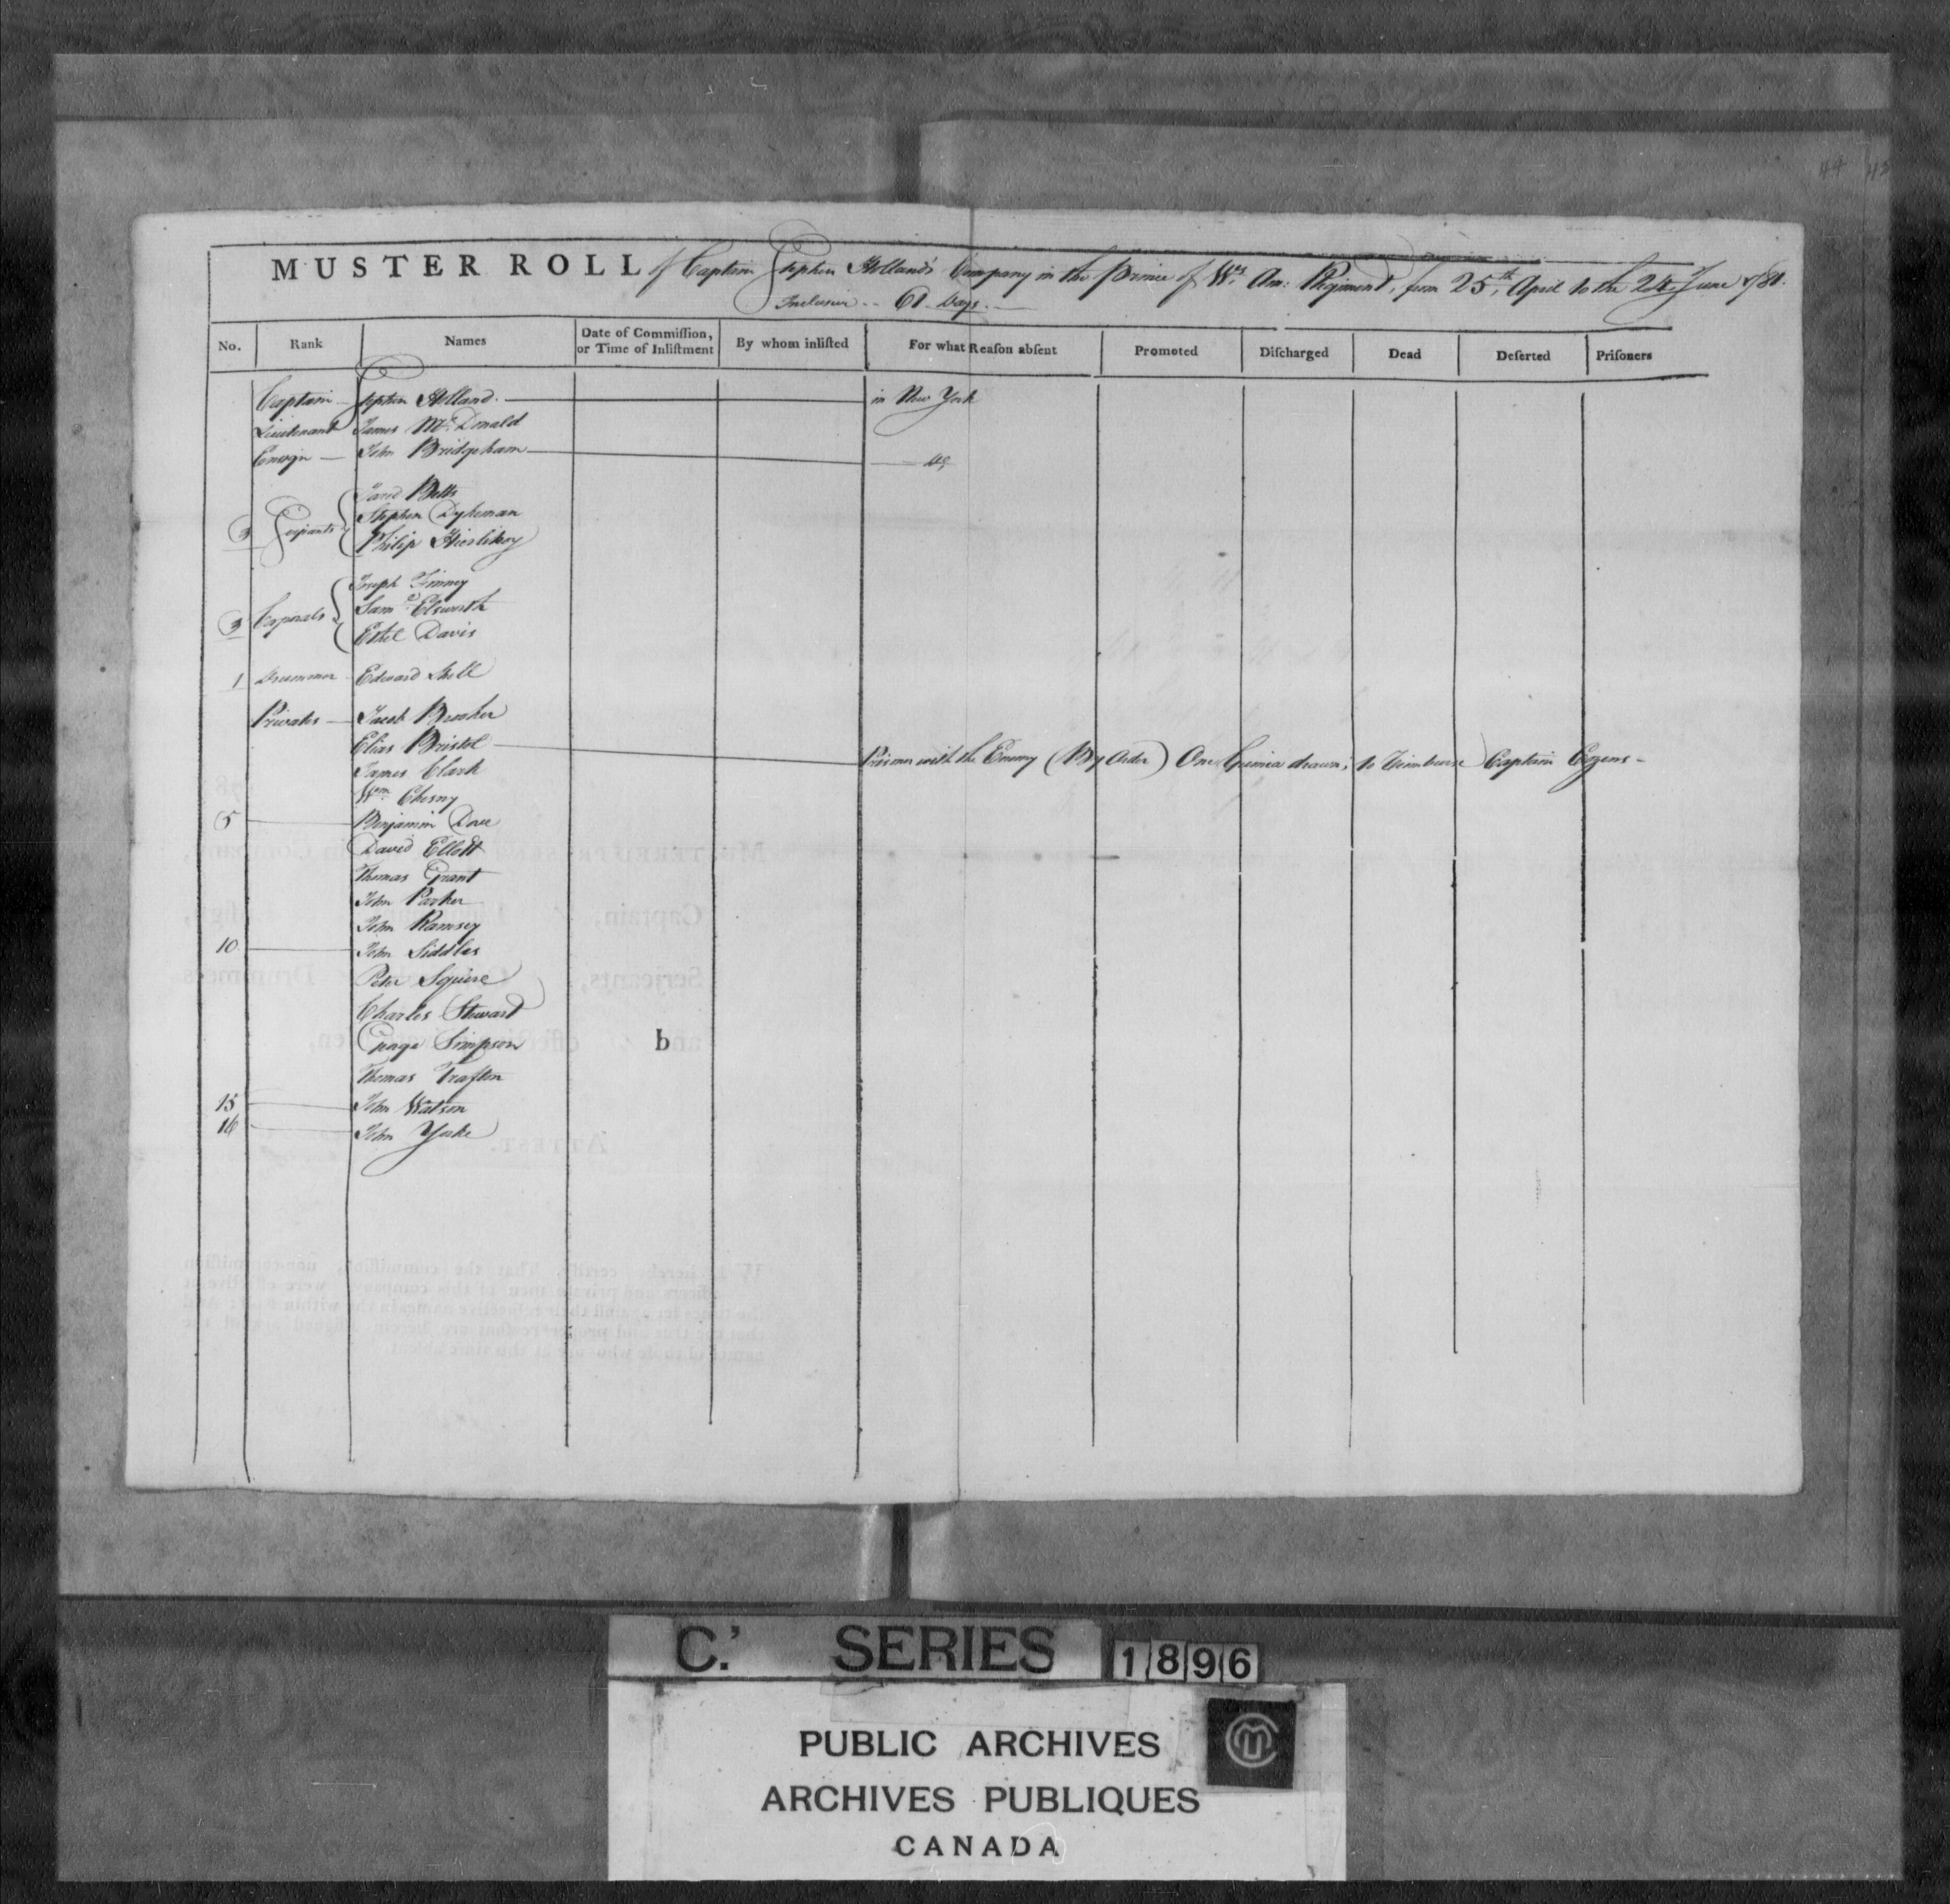 44 45
MUSTER ROLL of Captain Stephen Holland's Company in the Prince of Wes. Am: Regiment, from 25th April to the 24 June 1781.
Inclusive -- 61 Days.
No. Rank Names Date of Commission, or Time of Inlistment By whom inlisted For what Reason absent Promoted Discharged Dead Deserted Prisoners
Captain Stephen Holland. in New York
Lieutenant James McDonald
Ensign John Bridgeham do
3 Serjeants Jared Betts
Stephen Dykeman
Philip
3 Corporals Joseph Finney
Saml. Elsworth
Ethel Davis
1 Drummer Edward Shell
Privates Jacob Booker
Elias Bristol Prisoner with the Enemy (By Order) One Guinea drawn, to reimburse Captain Cozens -
James Clark
Wm. Chesny
5 Benjamin Dove
David Ellott
Thomas Grant
John Parker
John Ramsey
10 John Siddles
Peter Squire
Charles Steward
George Simpson
b
Thomas Trafton
15 John Watson
16 John Yorke
C.' SERIES 1896
PUBLIC ARCHIVES
ARCHIVES PUBLIQUES
CANADA